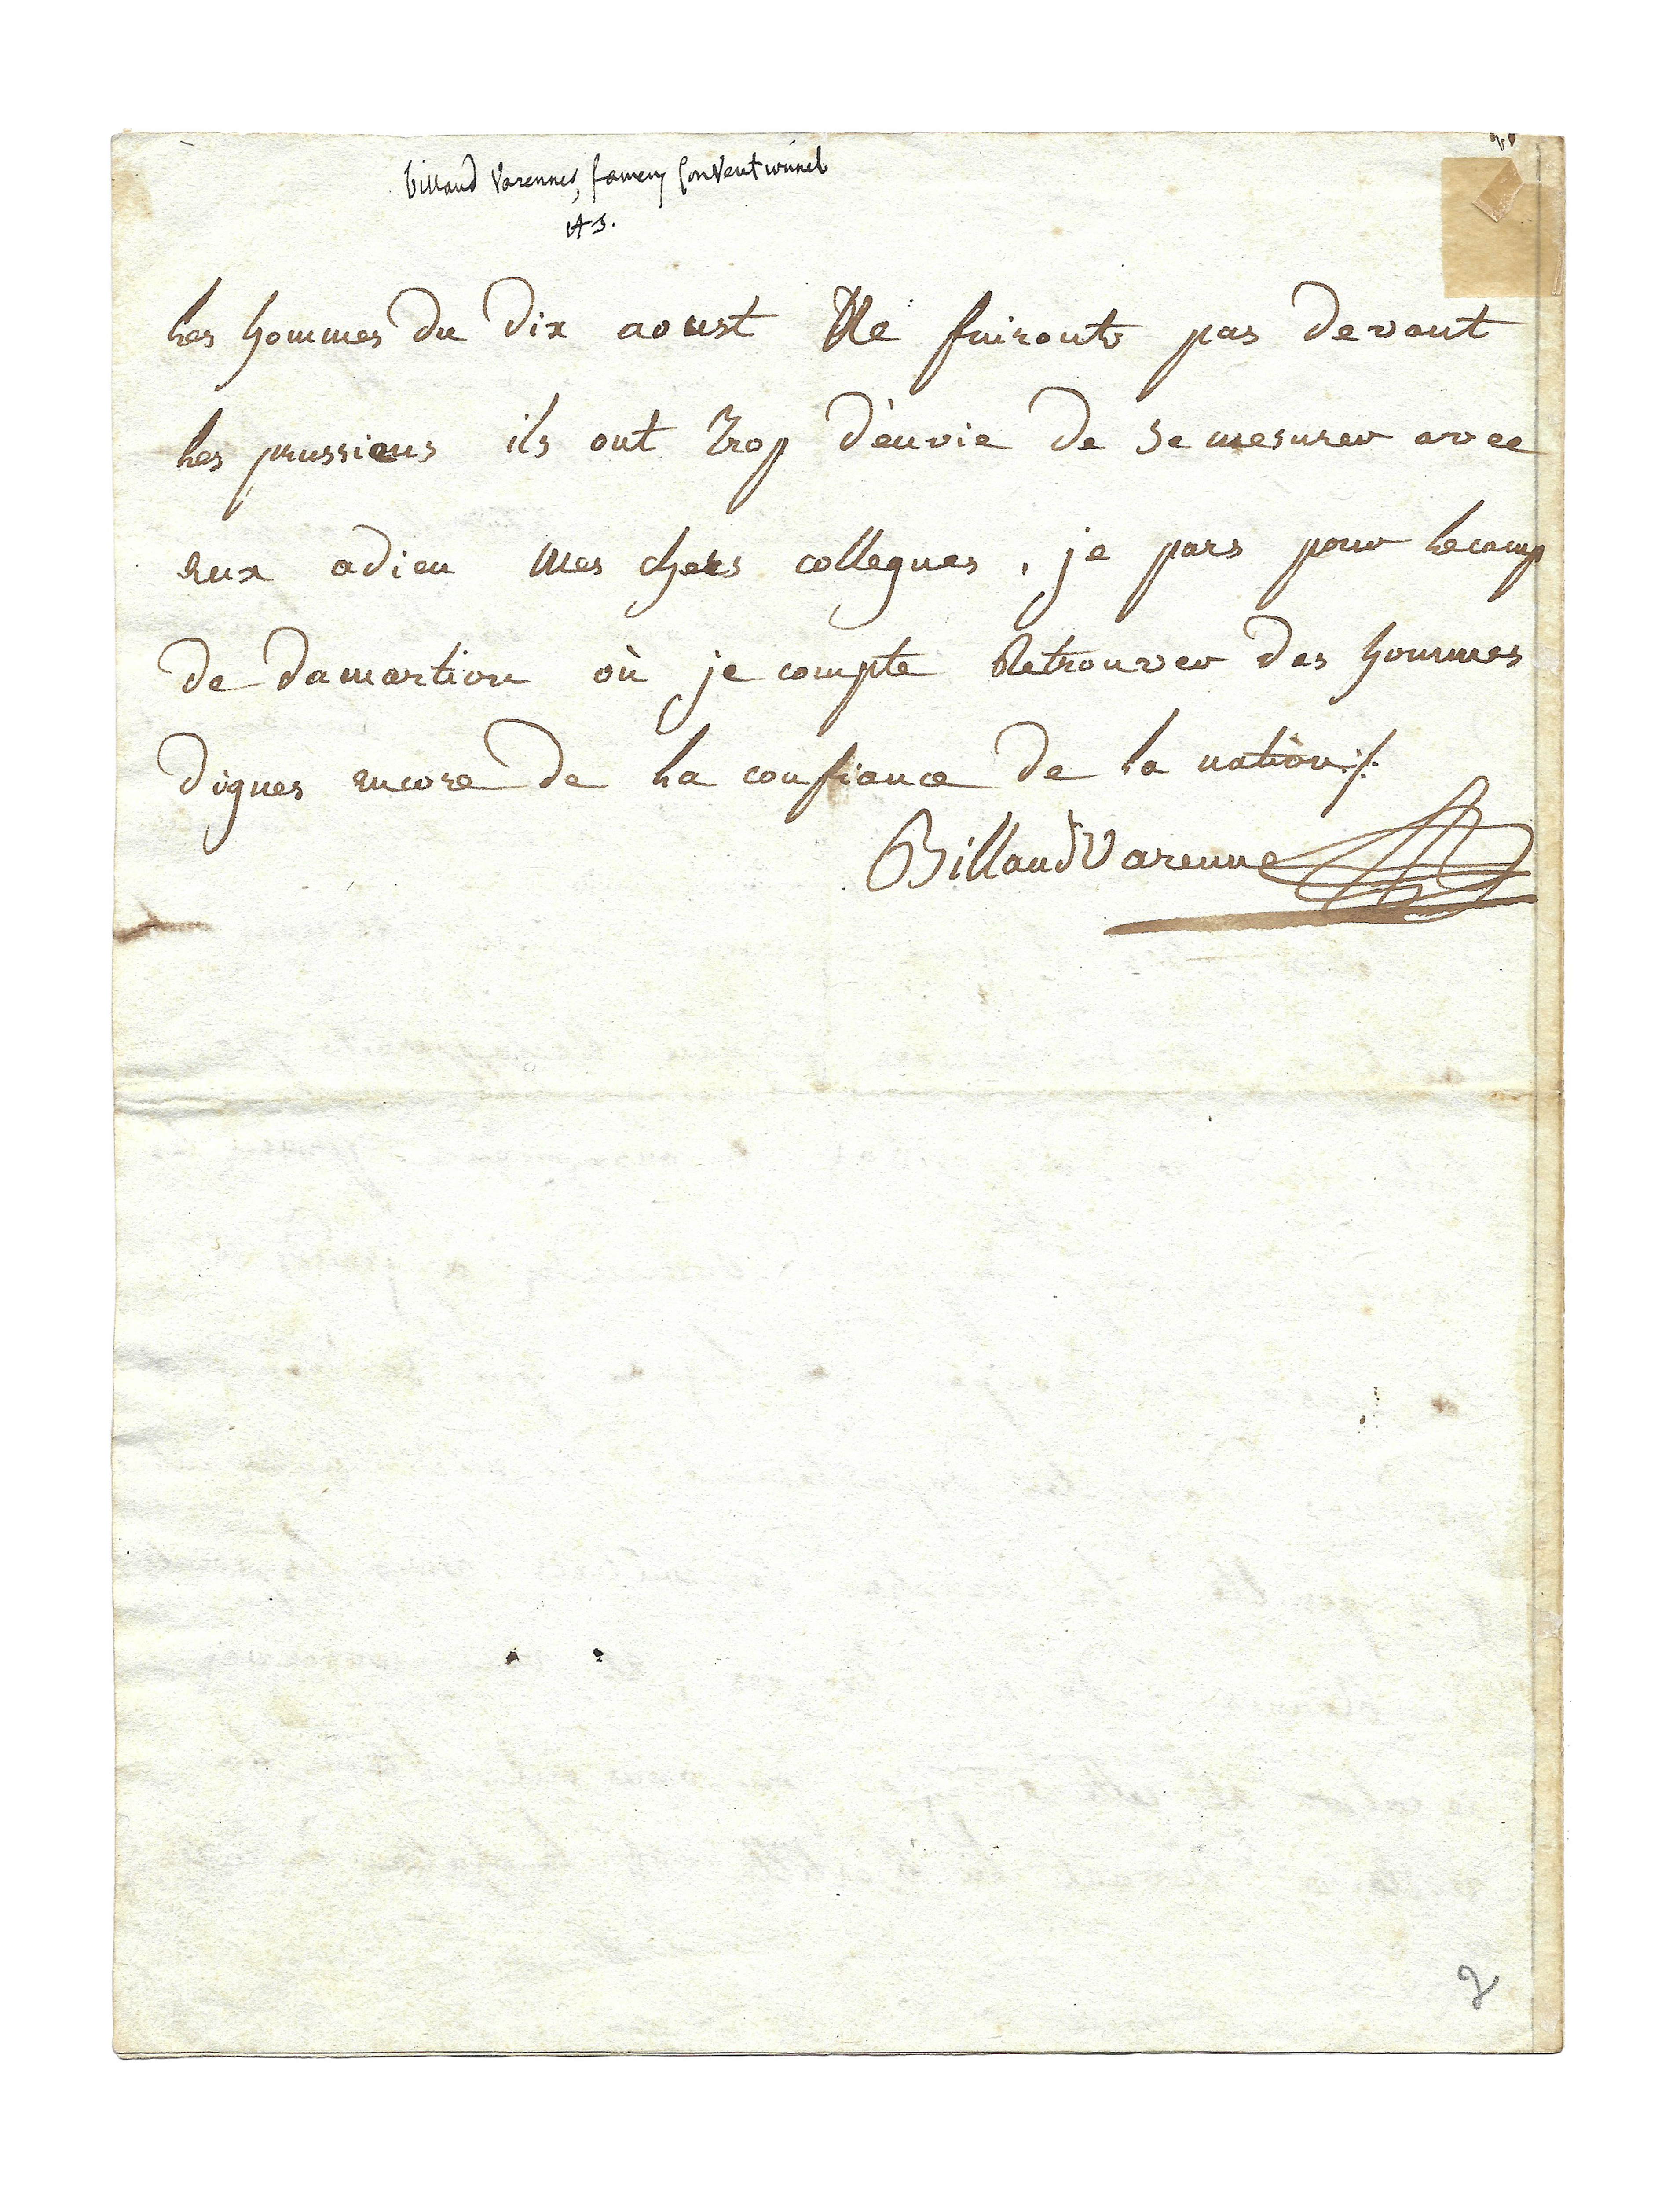 billaud Varennes, fameux Conventionnel
les hommes du dix aoust Ne fuironts pas devant
les prussiens ils ont trop d'envie de se mesurer avec
eux adieu Mes chers collegues, je pars pour le camp
de damartion où je compte Retrouver des hommes
dignes encore de la confiance de la nation ./.
Billaud Varenne
2